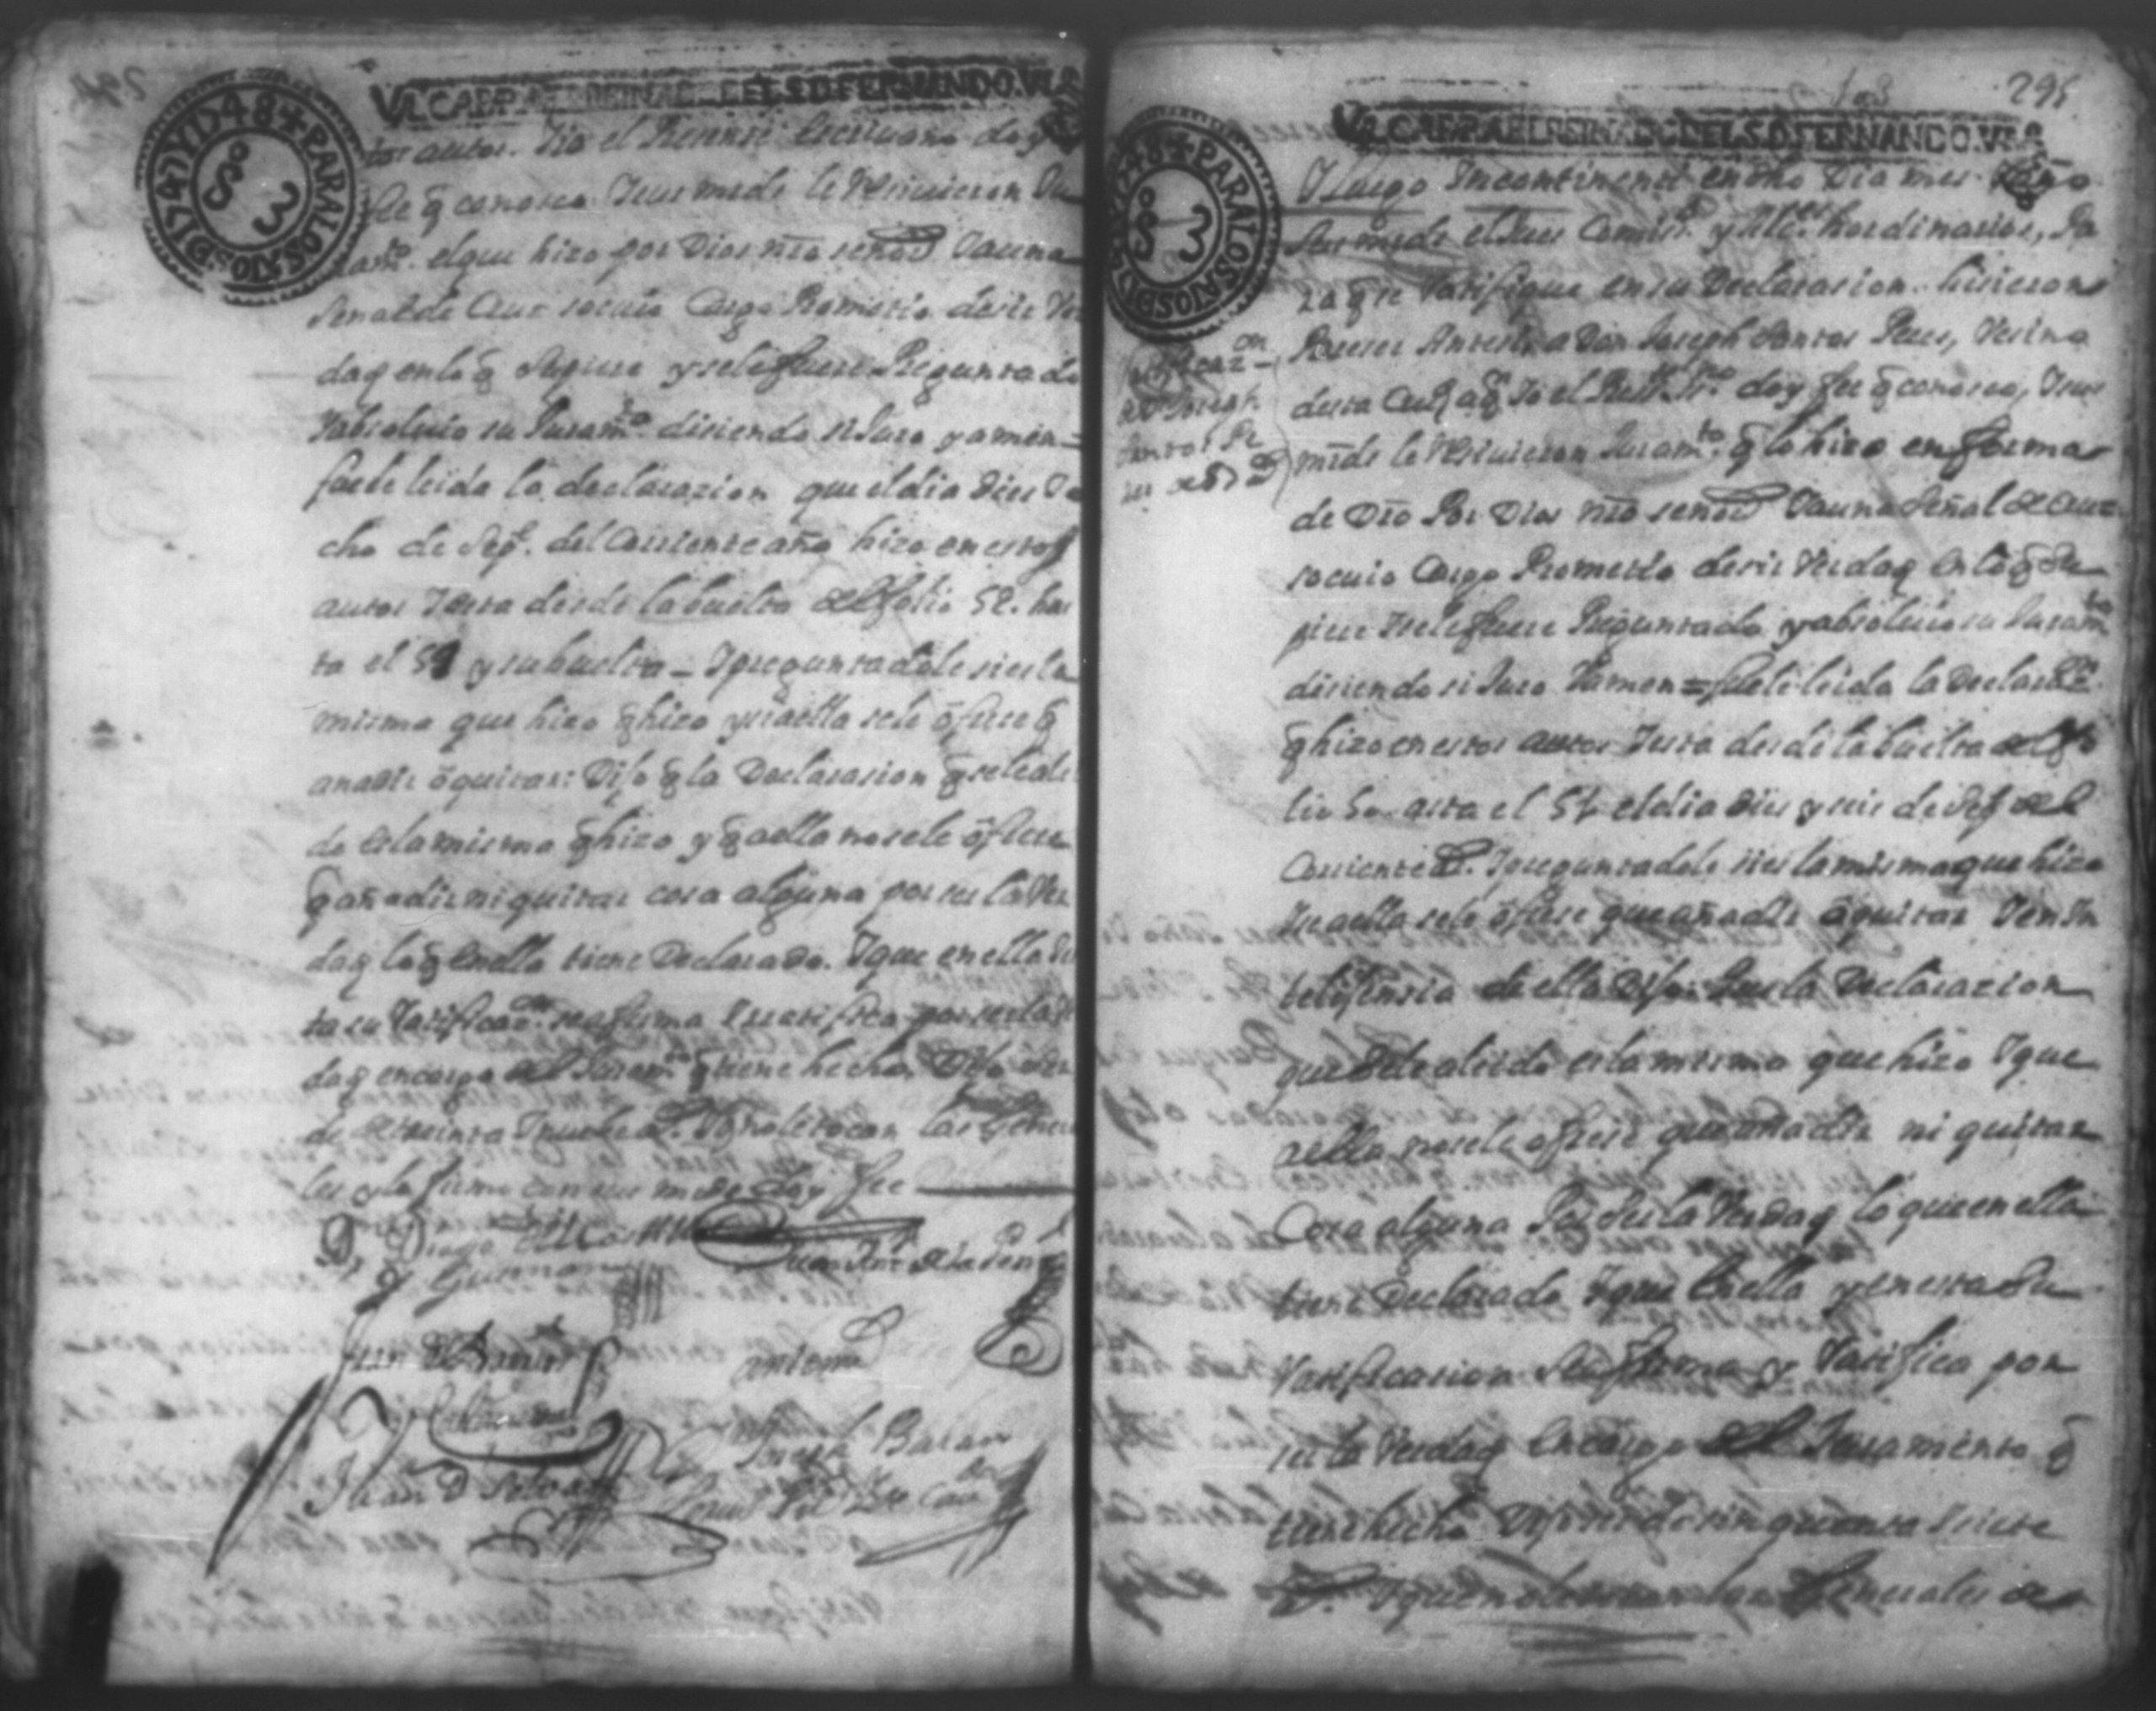 VALGA PARA EL REINADO DEL S.D. FERNANDO. VI.
PARA LOS AÑOS D 1747 Y 1748
tos autos. Yo el Presente Escriuano doy
fee q̃ conosco Y sus mrds le Resiuieron Ju
ram.to el que hizo por Dios nrõ señor Y a una
senal de Cruz so cuio Cargo Prometio desir Ver
dad en lo q̃ Supiere y se le fuere Preguntado
Y absoluio su Juram.to disiendo si Juro y amen =
fuele leida la declarazion que el dia dies Y o
cho de Sep.e del Corriente año hizo en estos
autos Y esta desde la buelta del folio 52. has
ta el y su buelta – Y preguntadole si es la
misma que hizo q̃ hizo y si a ella se le ofrese q̃
anadir o quitar: Dijo q̃ la Declarasion q̃ se le a lei
do es la misma q̃ hizo y q̃ a ella no se le ofrese
q̃ añadir ni quitar cosa alguna por ser la Ver
dad lo q̃ en ella tiene Declarado. Y que en ella y es
ta su Ratificaz.on se afirma Y ratifica por ser la Ver
dad en cargo del Juram.to q̃ tiene hecho. Dijo ser
de treinta Y nueve a.s Y q̃ no le tocan las Genera
les y lo firmo con sus mrds doy fee
D. Diego del Castillo
y Guzman
Juan Ant.o de la Peña
ante mi
Juan D
Joseph Baland
295
VALGA PARA EL REINADO DEL S.D. FERNANDO. VI.
PARA LOS AÑOS D 1747 Y 1748
Y luego Yncontinenti en dho Dia mes Y año
Sus mrds el Jues Comis.o y Alc.es hordinarios, Pa
ra q̃ se ratifique en su Declarasion hisieron
Pareser Ante si, a Don Joseph Santos Peres, Vesino
desta Ciu.d a q.n Yo el Press.te ss.no doy fee q̃ conosco, Y sus
mrds le Resiuieron Juram.to q̃ lo hizo en forma
de Dro Por Dios nrõ señor Y a una Señal de Cruz
so cuio Cargo Prometio desir Verdad en lo q̃ Su
piere Y se le fuere Preguntado y absoluio su Juram.to
disiendo si Juro Y amen = fuele leida la Declaraz.on
q̃ hizo en estos autos Y esta desde la buelta del fo
lio asta el el dia dies y seis de Sep.e del
Corriente a. Y preguntadole si es la misma que hizo
Y si a ella se le ofrese que añadir o quitar Y en Yn
teligensia de ella Dijo: Que la Declarazion
que se le a leido es la misma que hizo Y que
a ella no se le ofrese que anadir ni quitar
Cosa alguna Por ser la Verdad lo que en ella
tiene Declarado Y que en ella y en esta Su
Ratificasion se afirma y Ratifica por
ser la Verdad en cargo del Juramento q̃
tiene hecho Dijo ser de sinquenta Y siete
a.s Y que no le tocan las Generales de
Ratificaz.on
de D.n Joseph
Santos Pe
res